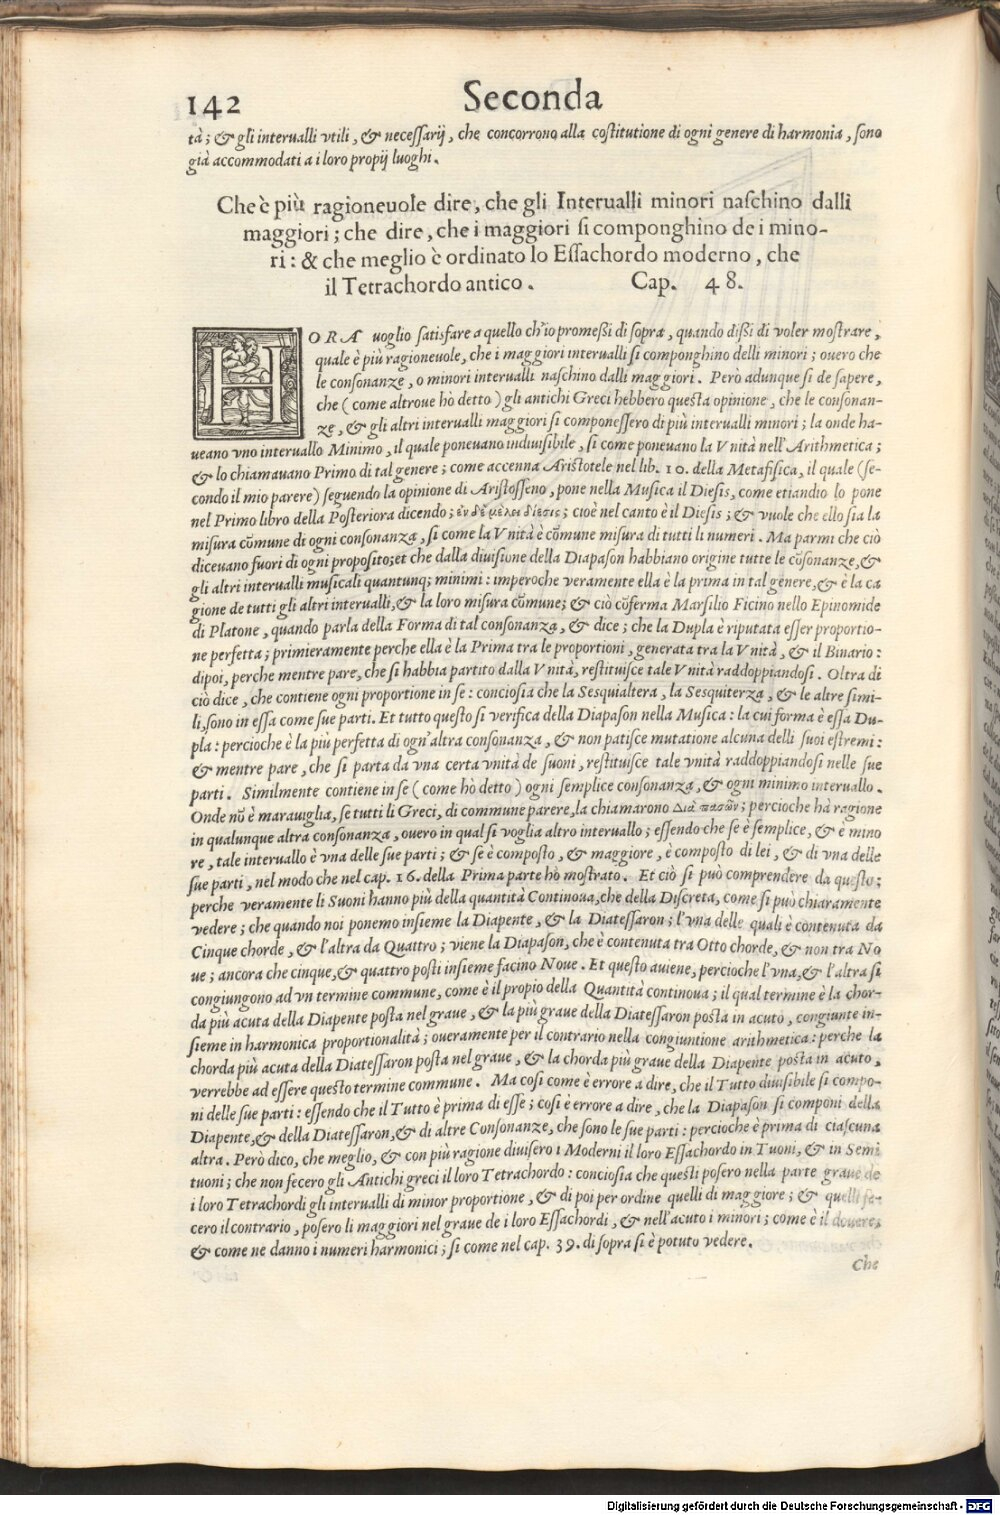 142 Seconda
tà; & gli interualli vtili, & necessarij, che concorrono alla costitutione di ogni genere di harmonia, sono
già accommodati a i loro propij luoghi.
Che è più ragioneuole dire, che gli Interualli minori naschino dalli
maggiori; che dire, che i maggiori si componghino de i mino-
ri: & che meglio è ordinato lo Essachordo moderno, che
il Tetrachordo antico. Cap. 48.
HORA uoglio satisfare a quello ch'io promeßi di sopra, quando dißi di voler mostrare,
quale è più ragioneuole, che i maggiori interualli si componghino delli minori; ouero che
le consonanze, o minori interualli naschino dalli maggiori. Però adunque si de sapere,
che (come altroue hò detto) gli antichi Greci hebbero questa opinione, che le consonan-
ze, & gli altri interualli maggiori si componessero di più interualli minori; la onde ha-
ueano vno interuallo Minimo, il quale poneuano indiuisibile, si come poneuano la Vnità nell'Arithmetica;
& lo chiamauano Primo di tal genere; come accenna Aristotele nel lib. 10. della Metafisica, il quale (se-
condo il mio parere) seguendo la opinione di Aristosseno, pone nella Musica il Diesis, come etiandio lo pone
nel Primo libro della Posteriora dicendo; ἐν δὲ μέλει δίεσις; cioè nel canto è il Diesis; & vuole che ello sia la
misura cõmune di ogni consonanza, si come la Vnità è cõmune misura di tutti li numeri. Ma parmi che ciò
diceuano fuori di ogni proposito; et che dalla diuisione della Diapason habbiano origine tutte le cõsonanze, &
gli altri interualli musicali quantunq; minimi: imperoche veramente ella è la prima in tal genere, & è la ca
gione de tutti gli altri interualli, & la loro misura cõmune; & ciò cõferma Marsilio Ficino nello Epinomide
di Platone, quando parla della Forma di tal consonanza, & dice; che la Dupla è riputata esser proportio-
ne perfetta; primieramente perche ella è la Prima tra le proportioni, generata tra la Vnità, & il Binario:
dipoi, perche mentre pare, che si habbia partito dalla Vnità, restituisce tale Vnità raddoppiandosi. Oltra di
ciò dice, che contiene ogni proportione in se: conciosia che la Sesquialtera, la Sesquiterza, & le altre simi-
li, sono in essa come sue parti. Et tutto questo si verifica della Diapason nella Musica: la cui forma è essa Du-
pla: percioche è la più perfetta di ogn'altra consonanza, & non patisce mutatione alcuna delli suoi estremi:
& mentre pare, che si parta da vna certa vnità de suoni, restituisce tale vnità raddoppiandosi nelle sue
parti. Similmente contiene in se (come hò detto) ogni semplice consonanza, & ogni minimo interuallo.
Onde nõ è marauiglia, se tutti li Greci, di commune parere, la chiamarono Διὰ πασῶν; percioche hà ragione
in qualunque altra consonanza, ouero in qual si voglia altro interuallo; essendo che se è semplice, & è mino
re, tale interuallo è vna delle sue parti; & se è composto, & maggiore, è composto di lei, & di vna delle
sue parti, nel modo che nel cap. 16. della Prima parte hò mostrato. Et ciò si può comprendere da questo;
perche veramente li Suoni hanno più della quantità Continoua, che della Discreta, come si può chiaramente
vedere; che quando noi ponemo insieme la Diapente, & la Diatessaron; l'vna delle quali è contenuta da
Cinque chorde, & l'altra da Quattro; viene la Diapason, che è contenuta tra Otto chorde, & non tra No
ue; ancora che cinque, & quattro posti insieme facino Noue. Et questo auiene, percioche l'vna, & l'altra si
congiungono ad vn termine commune, come è il propio della Quantità continoua; il qual termine è la chor-
da più acuta della Diapente posta nel graue, & la più graue della Diatessaron posta in acuto, congiunte in-
sieme in harmonica proportionalità; oueramente per il contrario nella congiuntione arithmetica: perche la
chorda più acuta della Diatessaron posta nel graue, & la chorda più graue della Diapente posta in acuto,
verrebbe ad essere questo termine commune. Ma cosi come è errore a dire, che il Tutto diuisibile si compo-
ni delle sue parti: essendo che il Tutto è prima di esse; cosi è errore a dire, che la Diapason si componi della
Diapente, & della Diatessaron, & di altre Consonanze, che sono le sue parti: percioche è prima di ciascuna
altra. Però dico, che meglio, & con più ragione diuisero i Moderni il loro Essachordo in Tuoni, & in Semi
tuoni; che non fecero gli Antichi greci il loro Tetrachordo: conciosia che questi posero nella parte graue de
i loro Tetrachordi gli interualli di minor proportione, & di poi per ordine quelli di maggiore; & quelli fe-
cero il contrario, posero li maggiori nel graue de i loro Essachordi, & nell'acuto i minori; come è il douere,
& come ne danno i numeri harmonici; si come nel cap. 39. di sopra si è potuto vedere.
Che
Digitalisierung gefördert durch die Deutsche Forschungsgemeinschaft - DFG